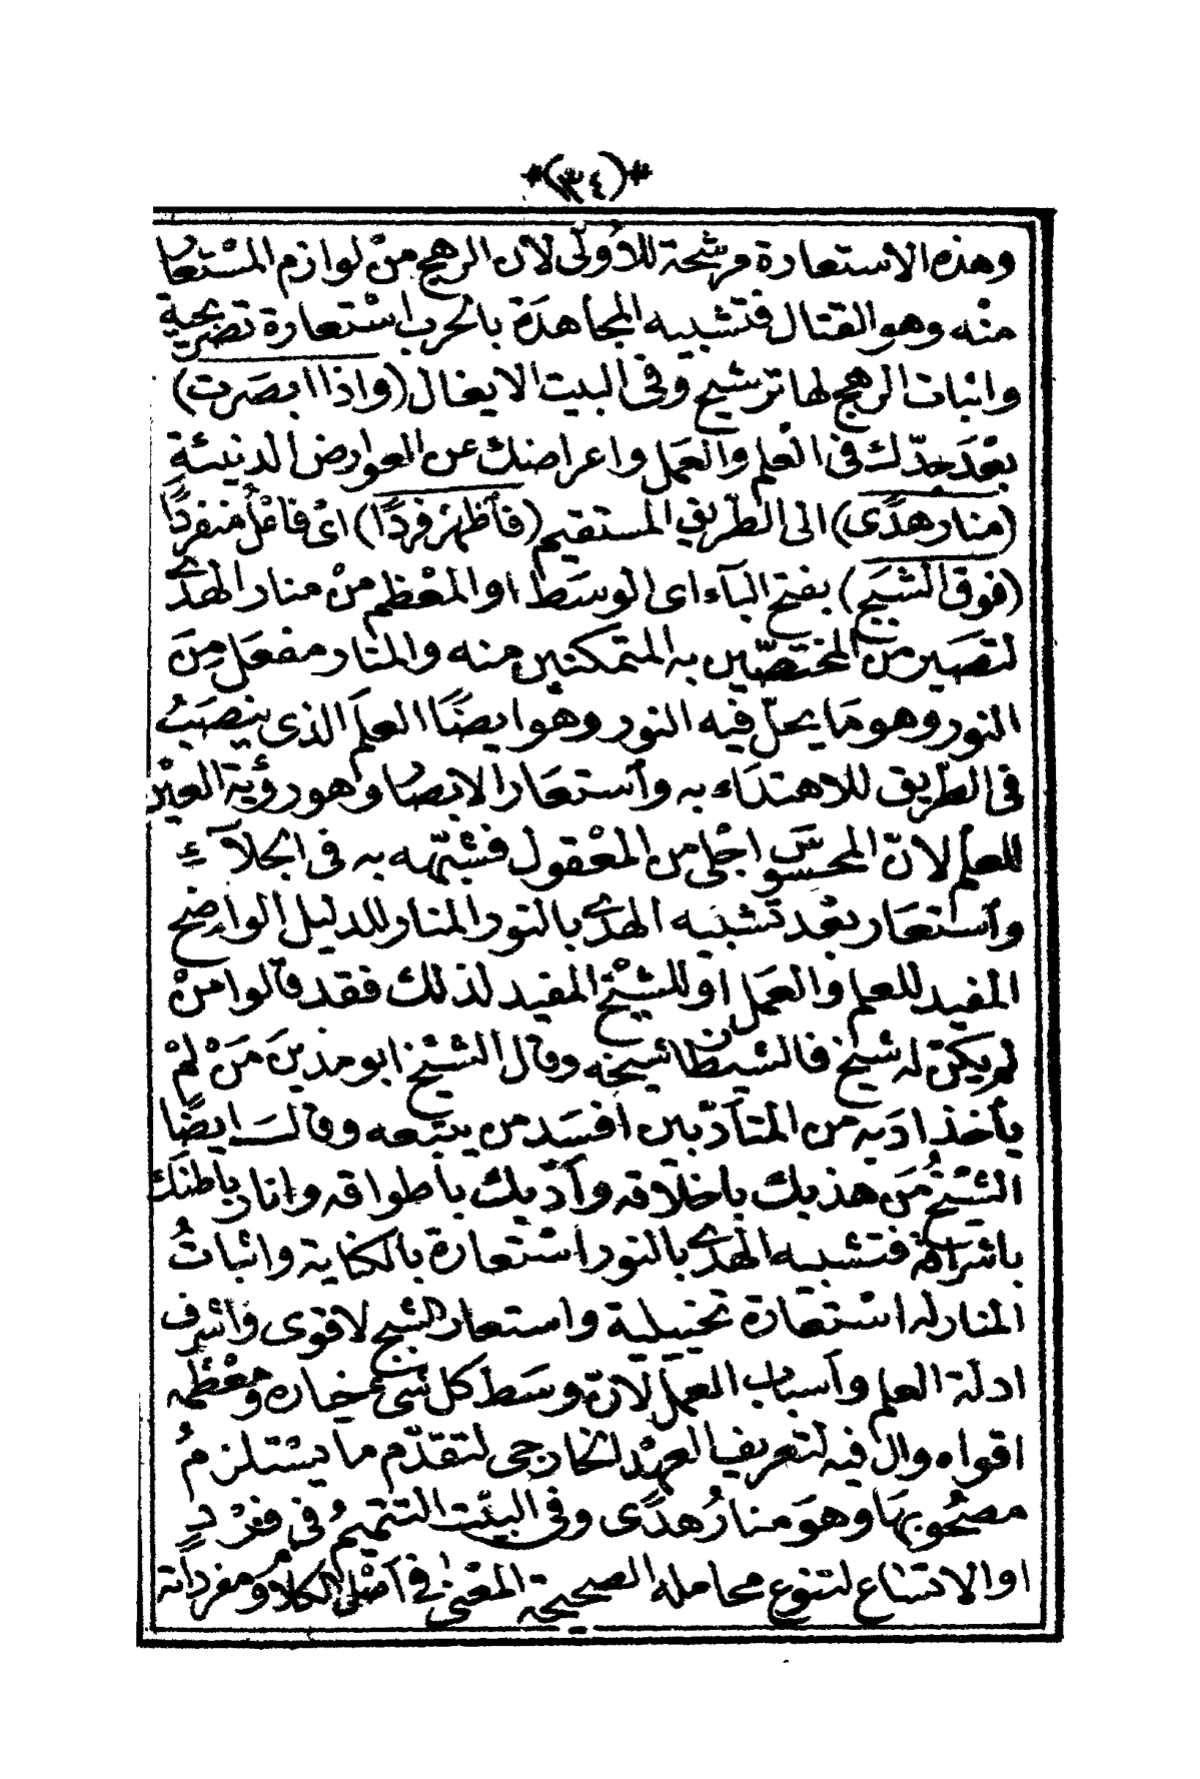 *(٣٤)*
وهذه الاستعارة مرشحة للاُولّى لان الرهج منْ لوازم المسْتعار
منْه وهو القتال فتشبيه المجاهدَة بالحرب اسْتعارة تصْريحية
واثبات الرهج لها ترشيح وفى البيت الايغال (واذا ابصَرت)
بعْدَ جدّك فى العْلم والعَمل واعراضك عن العوارض الدنيئة
(منار هدًى) الى الطّريق المستقيم (فاَظهرْ فردًا) اىْ فاعْل منفردًا
(فوق الشبَج) بفتح البآء اى الوسَط او المعْظم منْ منار الهدٰى
لتصَير من المختصّين به المتمكنين منه والمنار مفعَل مِنَ
النور وهو مَا يحلّ فيه النور وهو ايضًا العلَم الذى ينصَبُ
فى الطّريق للاهتدَاء به وأستعَار الابصار وهو رؤية العيْن
للعلم لانّ المحسوسَ اجْلى من المعْقول فشبّهه به فى الجلآءِ
وأستعَار بعْد تشبيه الهدٰى بالنور المنار للدليل الواضح
المفيد للعلم والعَمل او للشيْخ المفيد لذلك فقد قالوا منْ
لم يكنْ له شيخ فالشيطان شيخه وقال الشيْخ ابو مدينَ مَنْ لمْ
يأخذ ادَبه من المتأدّبين افسَد من يتبعه وقالـــ ايضًا
الشيْخُ مَن هذبك باخلاقه وأدّبك باطراقه وانار باطنك
باشراقه فتشبيه الهدٰى بالنور اسْتعارة بالكناية واثباتُ
المنار له اسْتعَارة تخييلية واستعار الشبج لاقوى واشرف
ادلة العلم وأسباب العمل لانّ وسَط كل شئ خياره ومعْظمه
اقواه وال فيه لتعريف العهْد الخارجى لتقدّم ما يسْتلزمُ
مصْحُوبهَا وهوَ منارُ هدًى وفى البيْت التتميمُ فى فرْدٍ
او الاتساع لتنوع محامله الصحيحة المعْنى فى أصْل الكلام ومفرداته